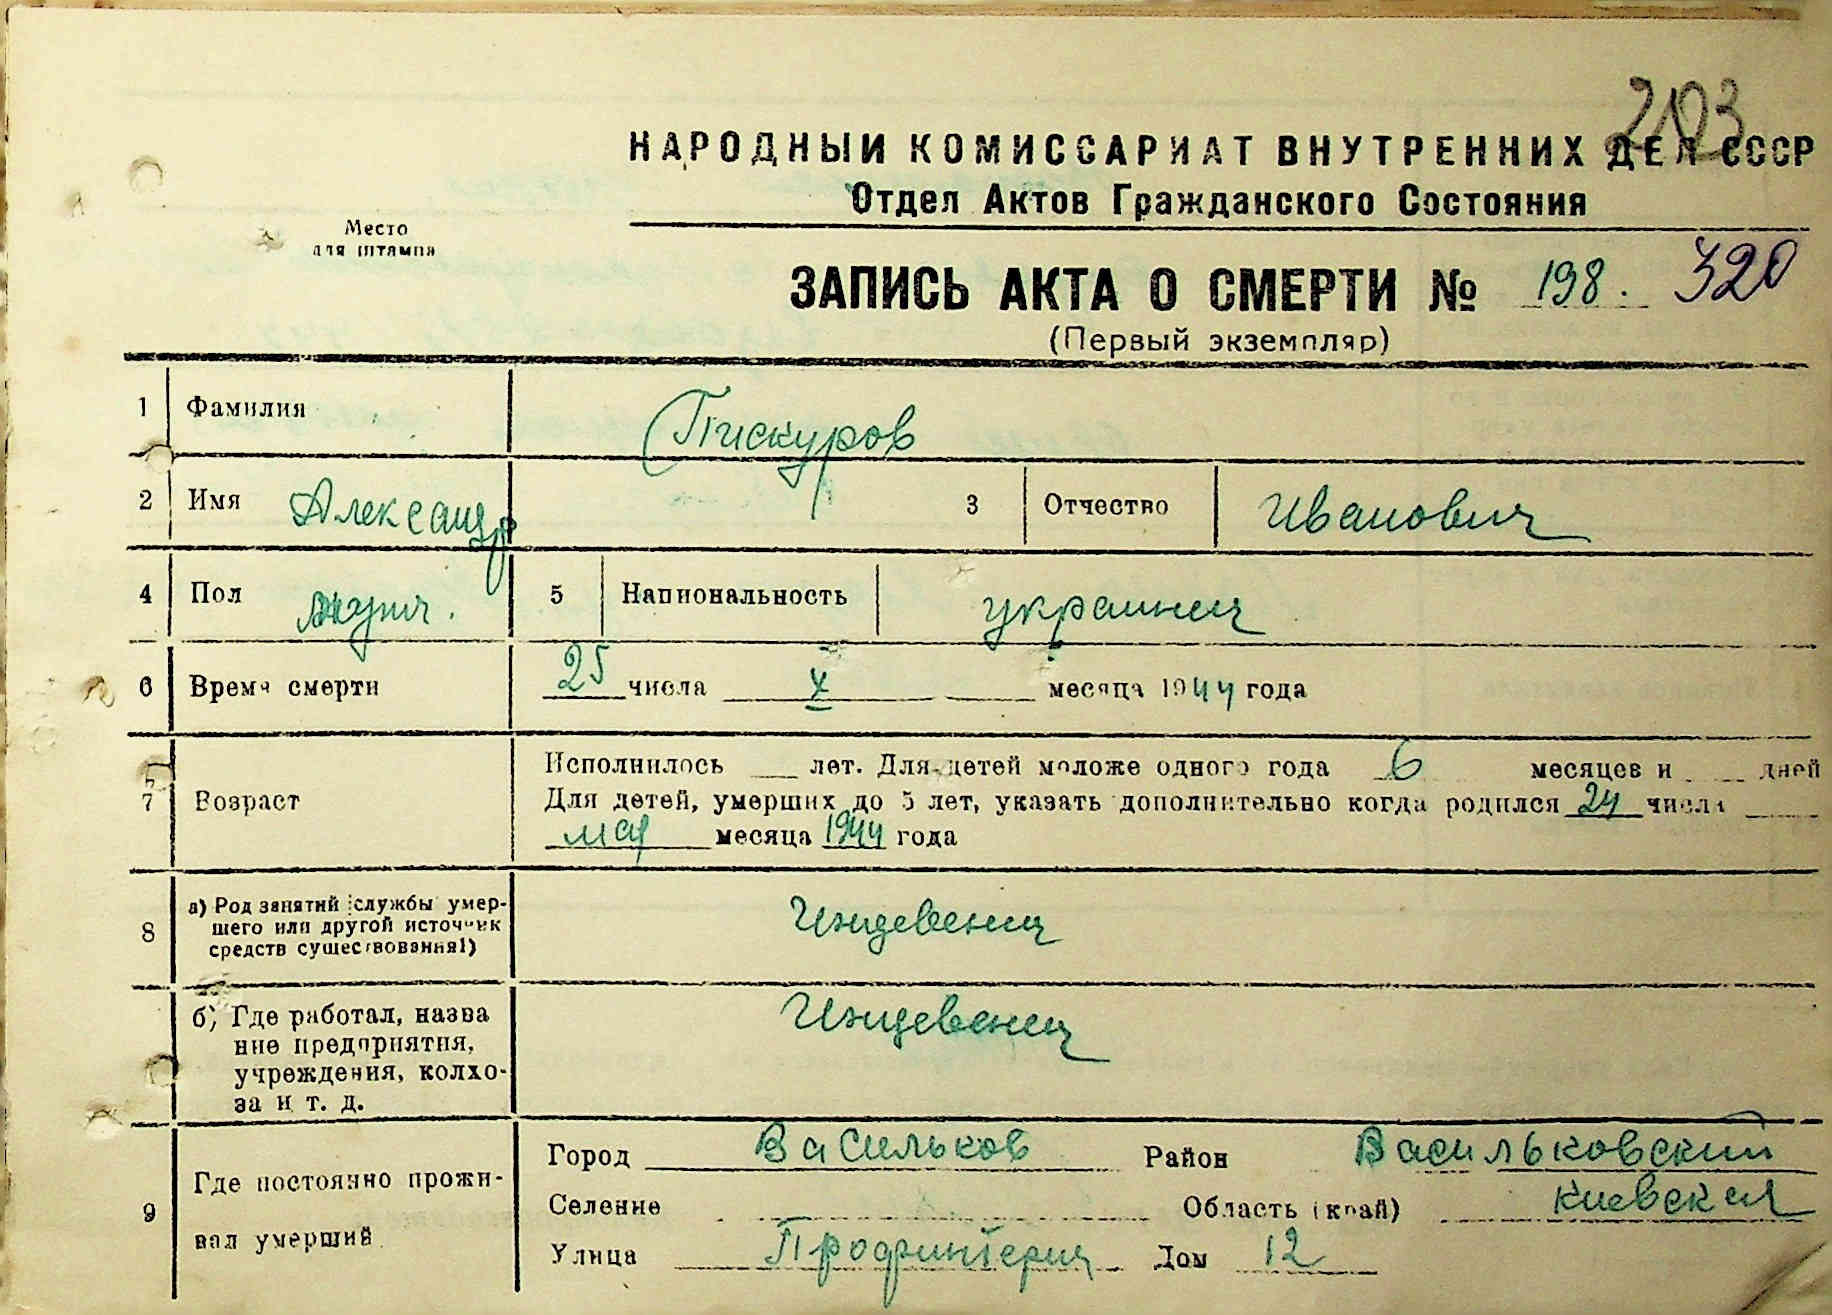 2103
НАРОДНЫЙ КОМИССАРИАТ ВНУТРЕННИХ ДЕЛ СССР
Отдел Актов Гражданского Состояния
Место
для штампа
ЗАПИСЬ АКТА О СМЕРТИ № 198. 320
(Первый экземпляр)
1 Фамилия Пискуров
2 Имя Александр 3 Отчество Иванович
4 Пол мужч. 5 Национальность украинец
6 Время смерти 25 числа X месяца 1944 года
7 Возраст
Исполнилось лет. Для детей моложе одного года 6 месяцев и дней
Для детей, умерших до 5 лет, указать дополнительно когда родился 24 числа
мая месяца 1944 года
8 а) Род занятий (службы умершего или другой источник средств существования1) Иждевенец
б) Где работал, назва
ние предприятия,
учреждения, колхо-
за и т. д. Иждевенец
9 Где постоянно прожи-
вал умерший
Город Васильков Район Васильковский
Селение Область (край) Киевская
Улица Профинтерна Дом 12